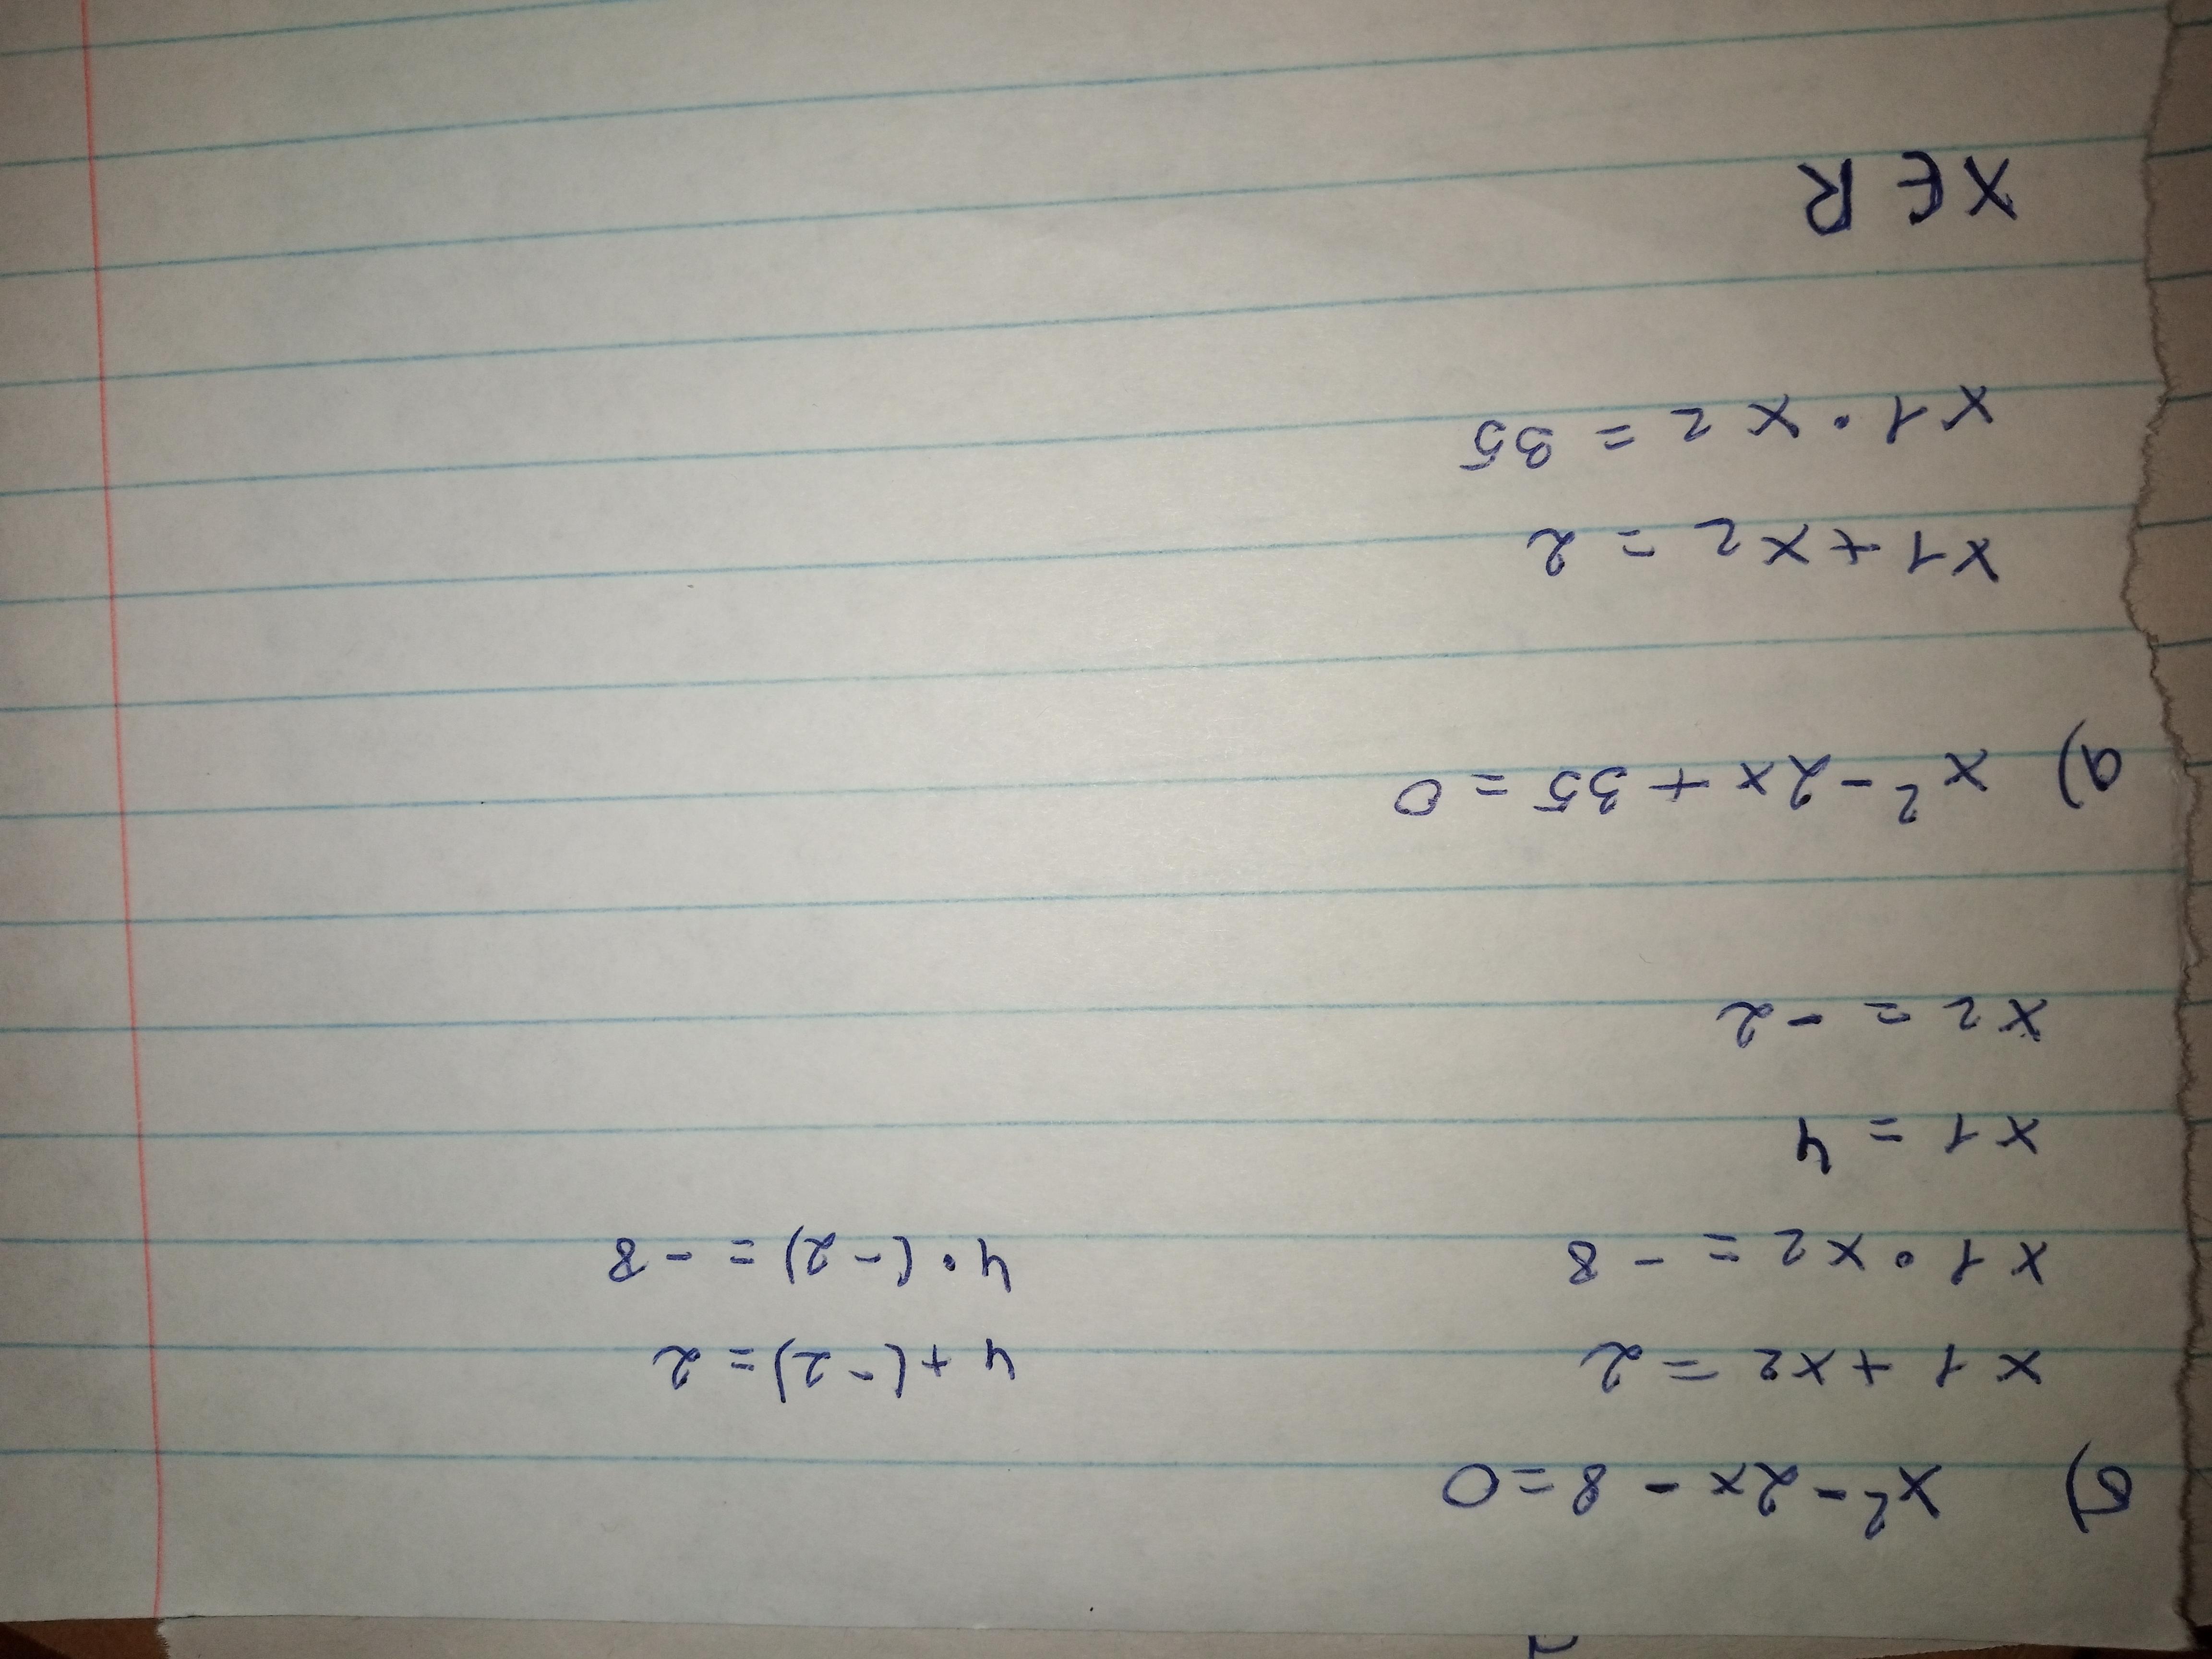 б) x² - 2x - 8 = 0
x1 + x2 = 2 4 + (-2) = 2
x1 · x2 = -8 4 · (-2) = -8
x1 = 4
x2 = -2
д) x² - 2x + 35 = 0
x1 + x2 = 2
x1 · x2 = 35
x ∈ R